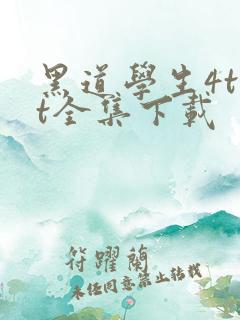 黑道學生4t
t全集下載
符躍蘭
未经同意禁止转载